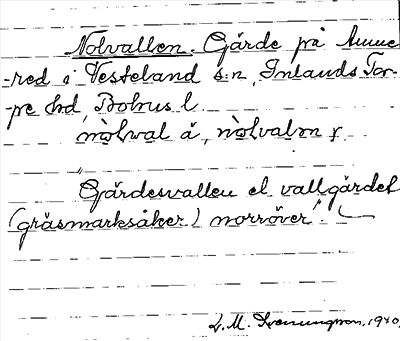 Nolvallen. Gärde på
-red i Vesteland s:n, Inlands Tor-
-pe hd, Bohus l.
nòlval å, nòlvalən f
"Gärdesvallen el vallgärdet
(gräsmarksåker) norröver".
L. M. Svenungsson, 1940.